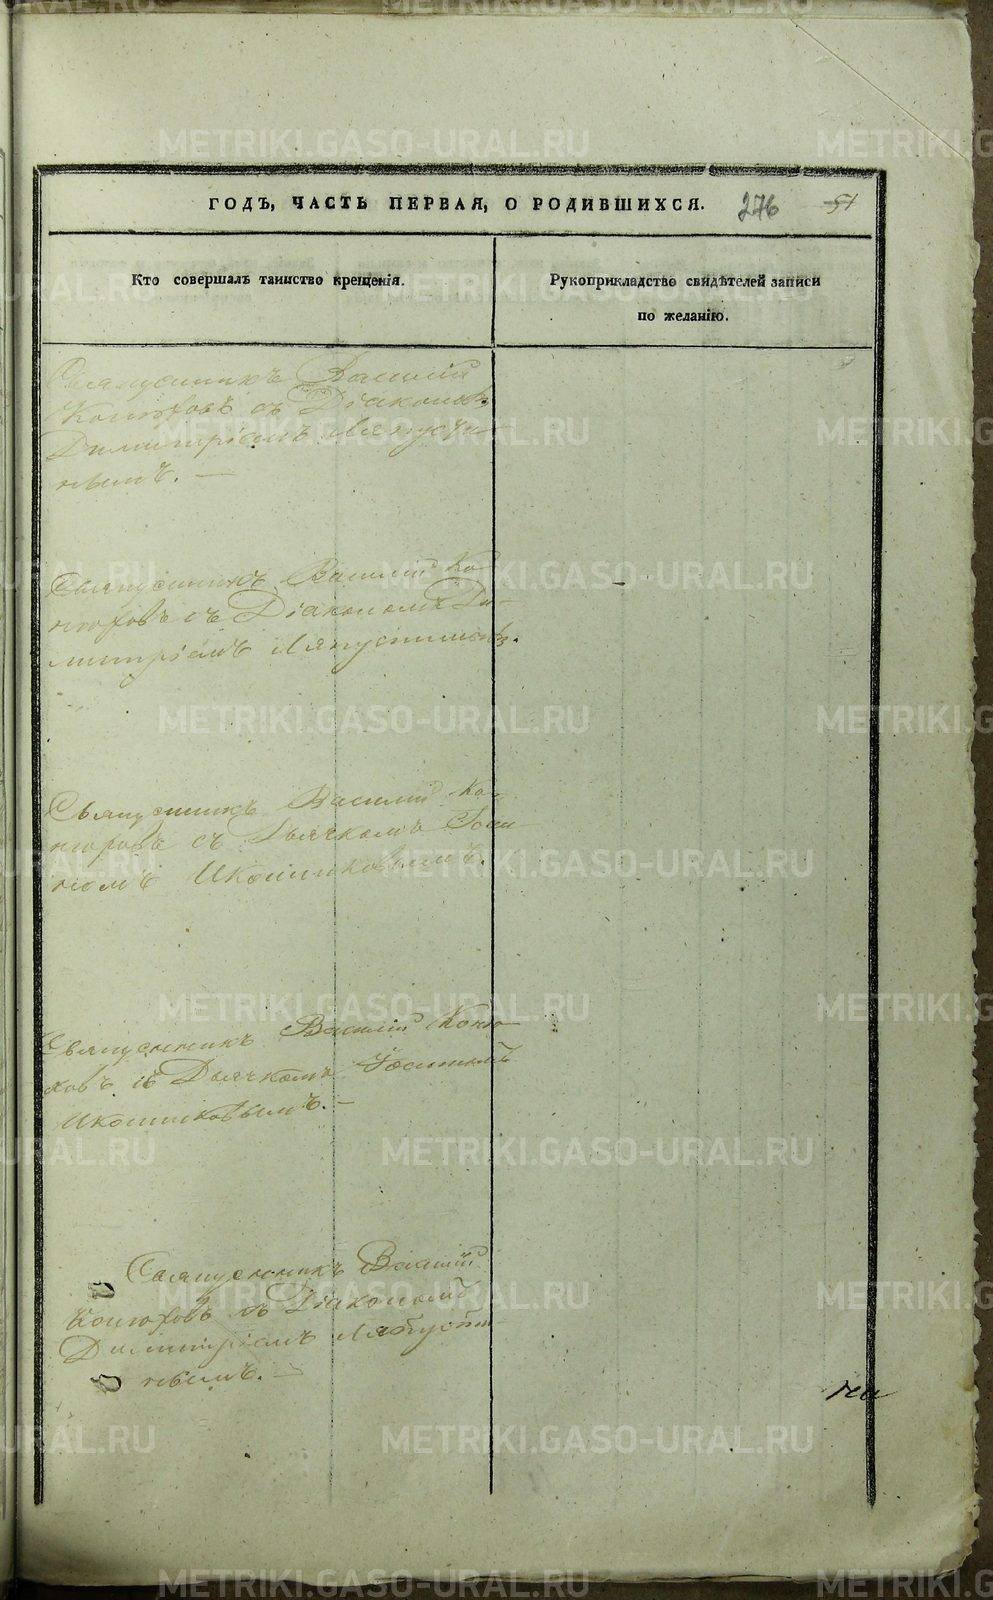 ГОДЪ, ЧАСТЬ ПЕРВАЯ, О РОДИВШИХСЯ.
276 51
Кто совершалъ таинство крещенія.
Рукоприкладство свидѣтелей записи
по желанію.
Священникъ Василій
Конюховъ съ Діакономъ
Димитріемъ Ляпусти-
нымъ. —
Священникъ Василій Ко-
нюховъ съ Діакономъ Ди-
митріемъ Ляпустинымъ.
Священникъ Василій Ко-
нюховъ съ Дьячкомъ Іоси
Иконниковымъ.
Священникъ Василій Коню-
ховъ съ Дьячкомъ
Иконниковымъ. —
Священникъ Василій
Конюховъ съ Діакономъ
Димитріемъ Ляпусти-
нымъ. —
METRIKI.GASO-URAL.RU